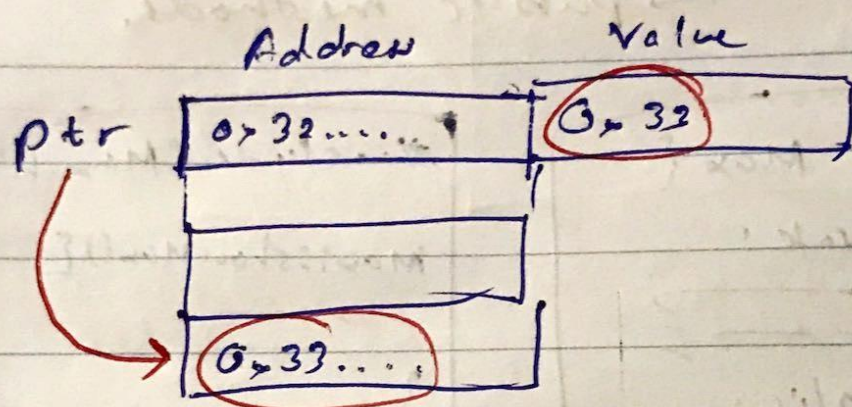 Address Value
ptr 0x32...... 0x33
0x33.....